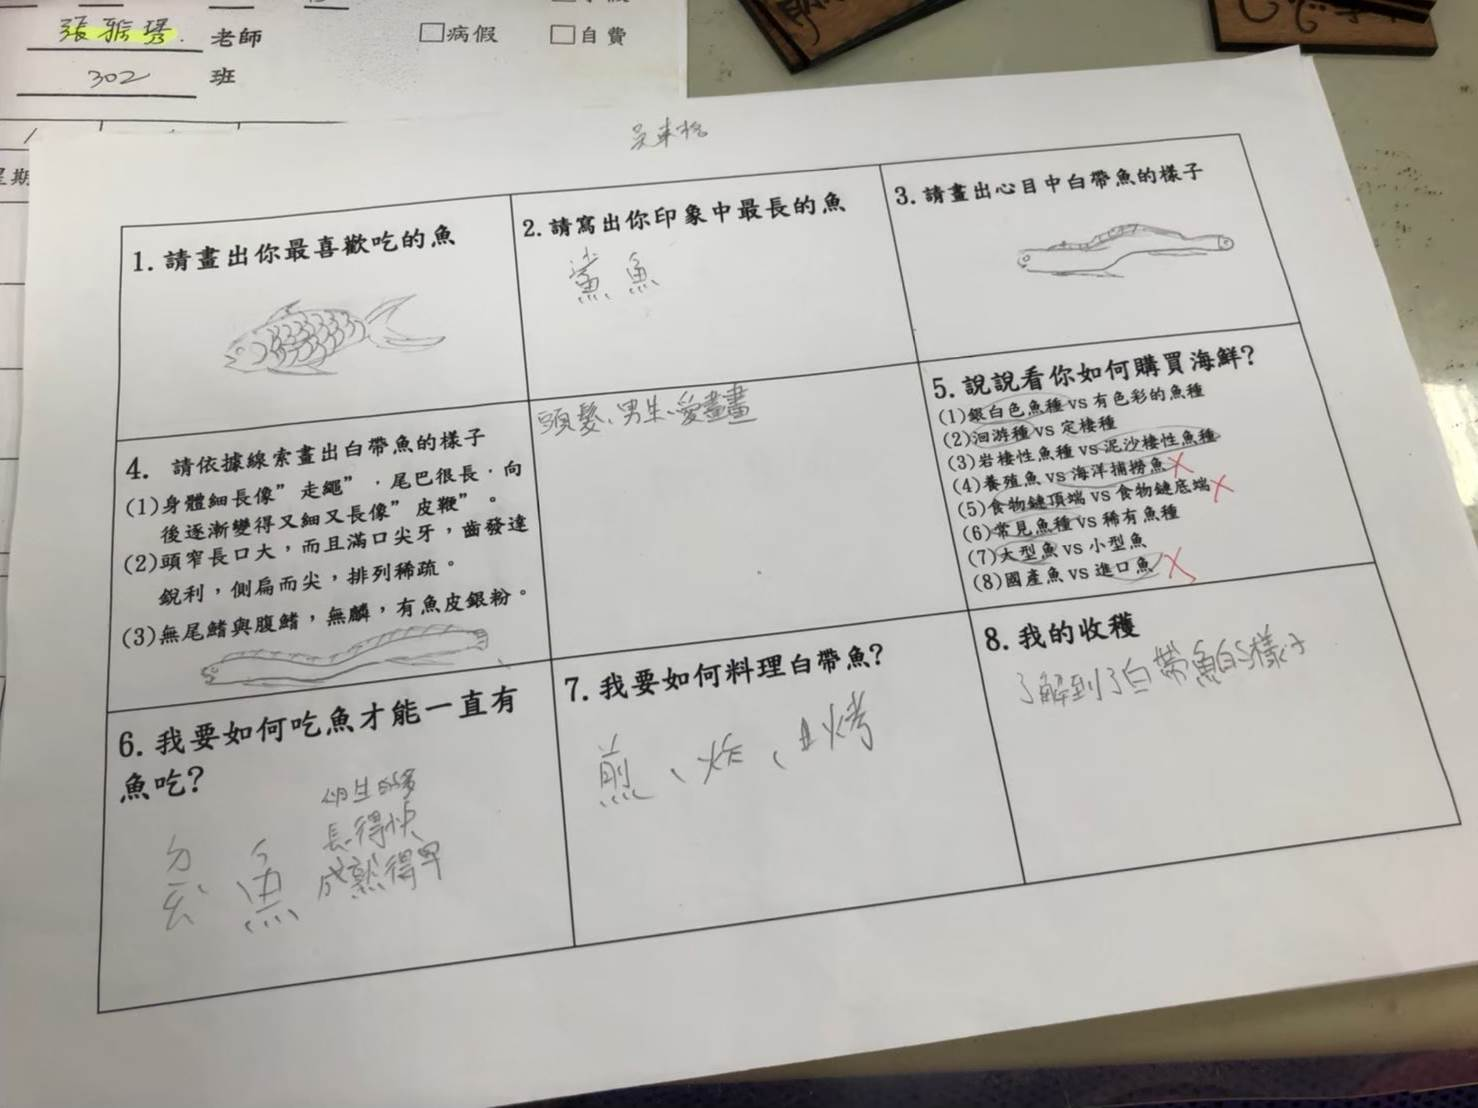 張雅琇 老師
□病假 □自費
302 班
1.請畫出你最喜歡吃的魚
2.請寫出你印象中最長的魚
鯊魚
3.請畫出心目中白帶魚的樣子
4. 請依據線索畫出白帶魚的樣子
(1)身體細長像”走繩”，尾巴很長，向
後逐漸變得又細又長像”皮鞭”。
(2)頭窄長口大，而且滿口尖牙，齒發達
銳利，側扁而尖，排列稀疏。
(3)無尾鰭與腹鰭，無麟，有魚皮銀粉。
頭髮、男生、愛畫畫
5.說說看你如何購買海鮮?
(1)銀白色魚種 vs 有色彩的魚種
(2)洄游種 vs 定棲種
(3)岩棲性魚種 vs 泥沙棲性魚種
(4)養殖魚 vs 海洋捕撈魚
(5)食物鏈頂端 vs 食物鏈底端
(6)常見魚種 vs 稀有魚種
(7)大型魚 vs 小型魚
(8)國產魚 vs 進口魚
6.我要如何吃魚才能一直有
魚吃?
魚
生的多
長得快
成熟得早
7.我要如何料理白帶魚?
煎、炸、烤
8.我的收穫
了解到了白帶魚的樣子